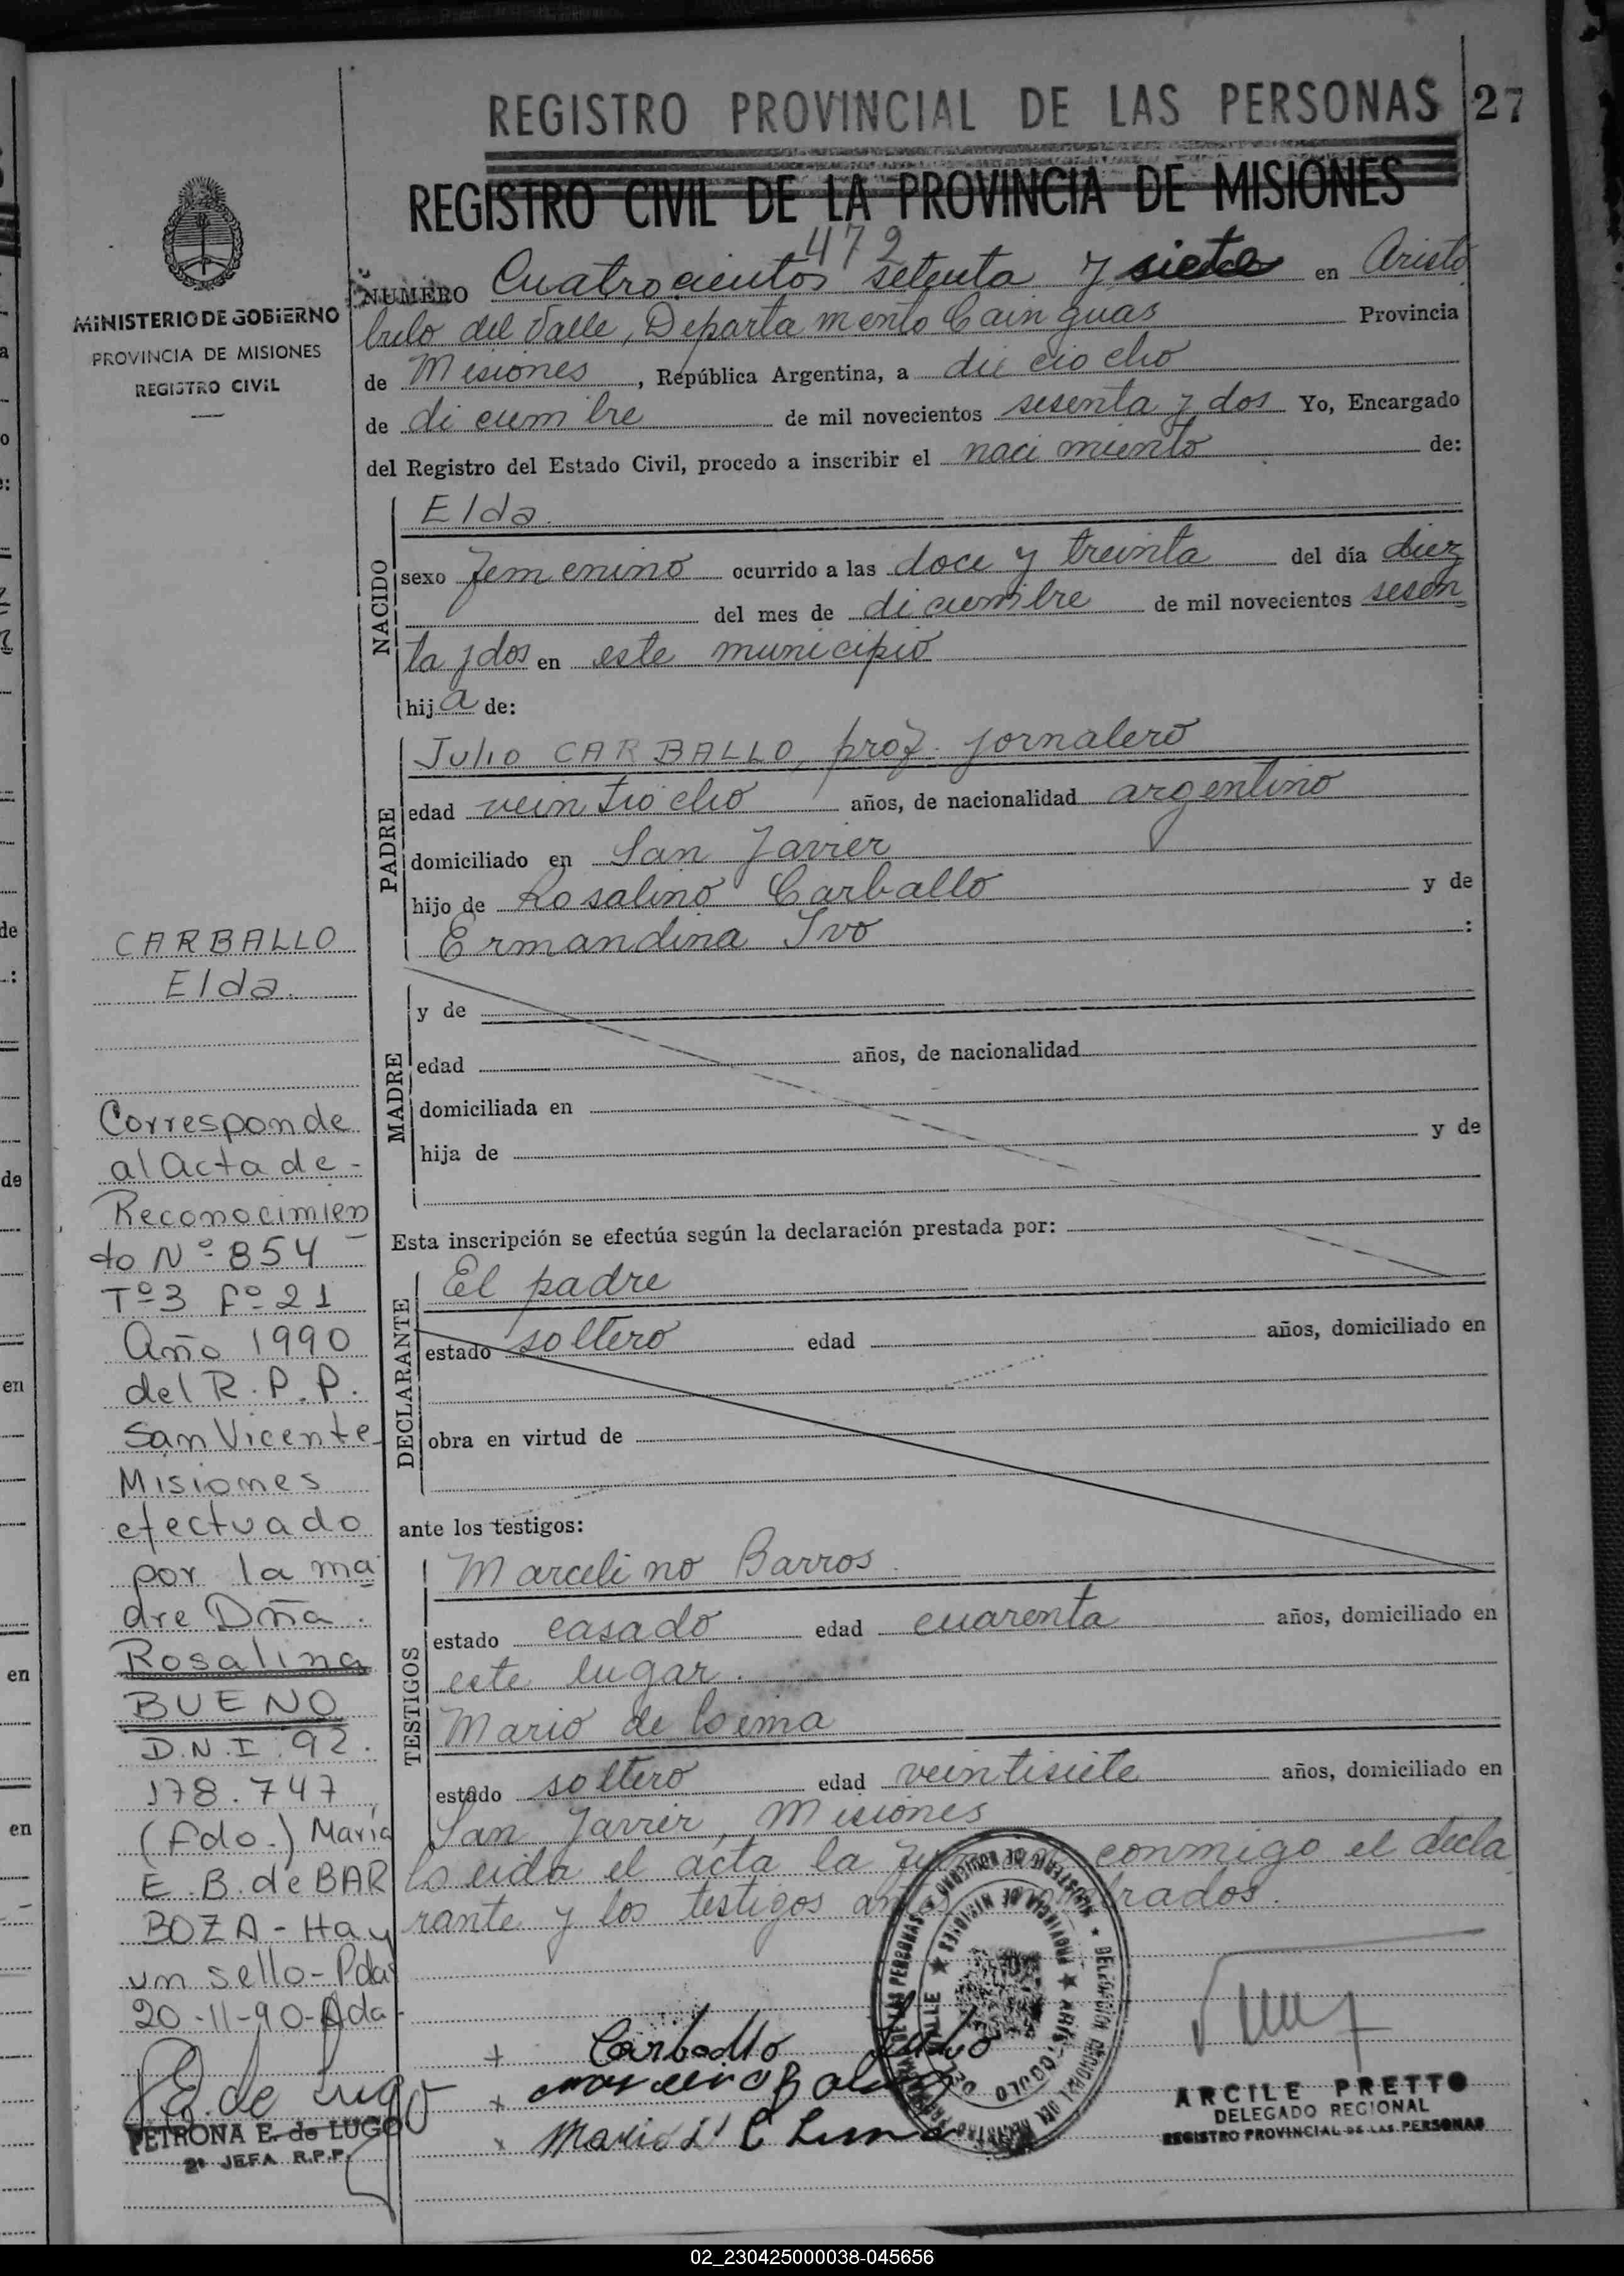 REGISTRO PROVINCIAL DE LAS PERSONAS 27
REGISTRO CIVIL DE LA PROVINCIA DE MISIONES
MINISTERIO DE GOBIERNO
PROVINCIA DE MISIONES
REGISTRO CIVIL
472
NUMERO Cuatrocientos setenta y siete en Aristo
bulo del Valle, Departamento Cainguas Provincia
de Misiones, República Argentina, a dieciocho
de diciembre de mil novecientos sesenta y dos Yo, Encargado
del Registro del Estado Civil, procedo a inscribir el nacimiento de:
NACIDO
Elda.
sexo femenino ocurrido a las doce y treinta del día diez
del mes de diciembre de mil novecientos sesen
ta y dos en este municipio
hija de:
PADRE
Julio CARBALLO, prof. jornalero
edad veintiocho años, de nacionalidad argentino
domiciliado en San Javier
hijo de Rosalino Carballo y de
Ermandina Ivo :
MADRE
y de
edad años, de nacionalidad
domiciliada en
hija de y de
Esta inscripción se efectúa según la declaración prestada por:
DECLARANTE
El padre
estado soltero edad años, domiciliado en
obra en virtud de
ante los testigos:
TESTIGOS
Marcelino Barros
estado casado edad cuarenta años, domiciliado en
este lugar.
Mario de Loima
estado soltero edad veintisiete años, domiciliado en
San Javier, Misiones
Leida el acta la conmigo el decla
rante y los testigos
Carballo Julio
ARCILE PRETTO
DELEGADO REGIONAL
REGISTRO PROVINCIAL DE LAS PERSONAS
CARBALLO
Elda.
Corresponde
al Acta de -
Reconocimien
to Nº 854
Tº 3 Fº 21
Año 1990
del R.P.P.
San Vicente
Misiones
efectuado
por la ma
dre Dña.
Rosalina
BUENO
D.N.I. 92.
178.747
(fdo.) María
E.B. de BAR
BOZA - Hay
un sello - Pdas
20-11-90-
E. de Lugo
PETRONA E. de LUGO
2ª JEFA R.P.P.
02_230425000038-045656